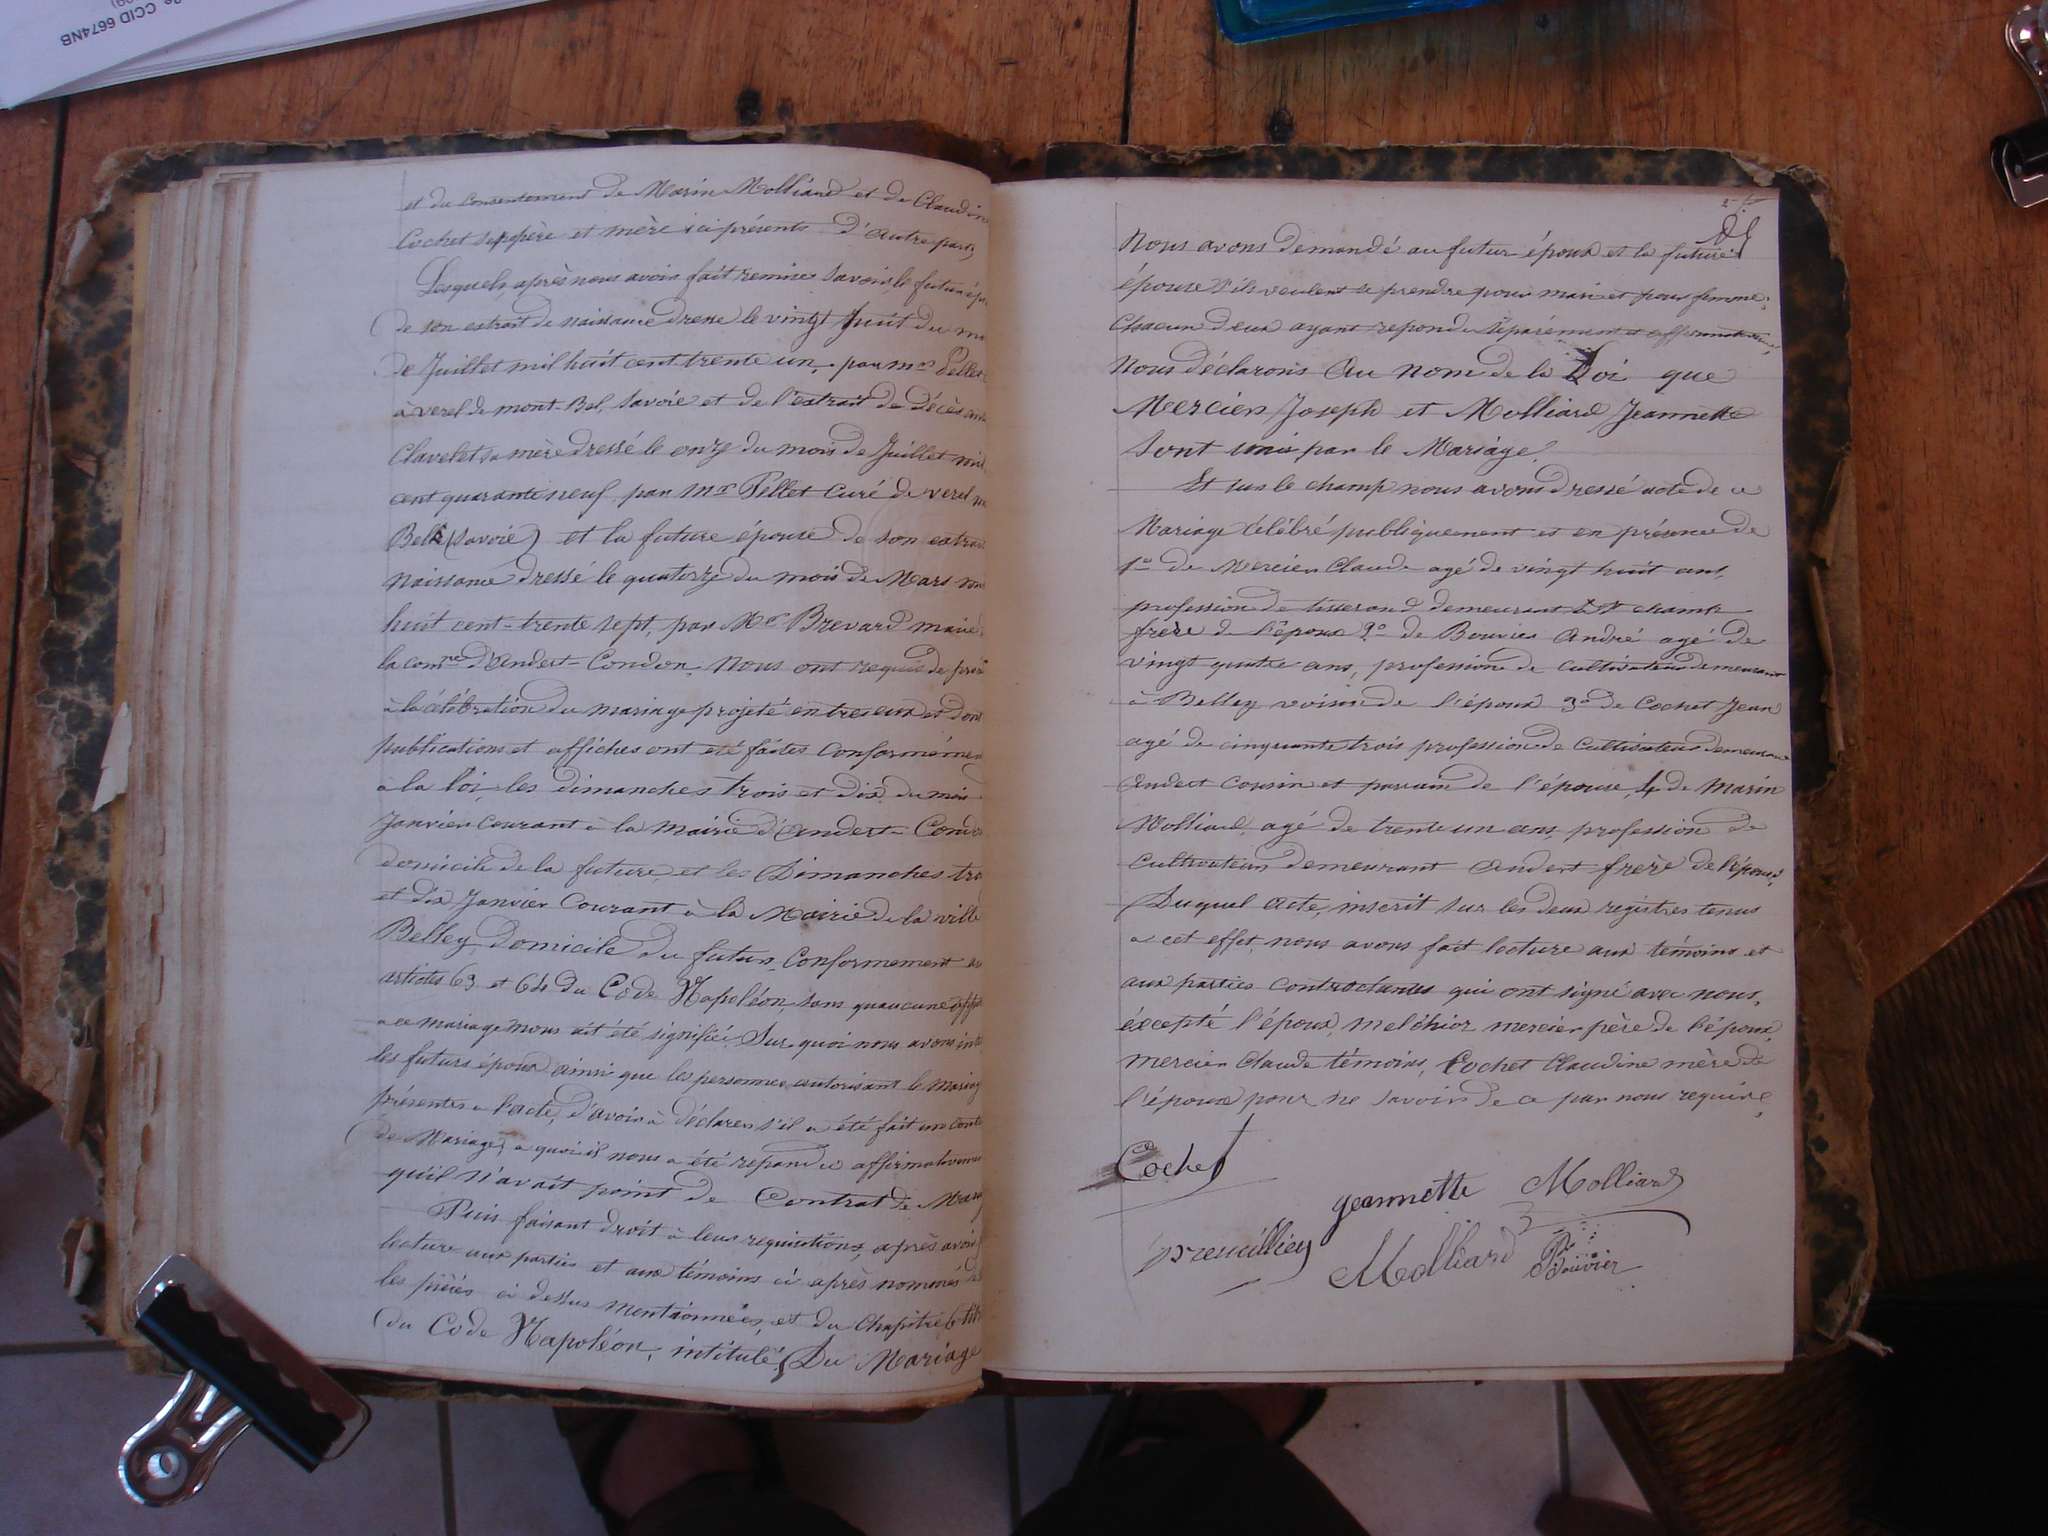 CCID 6674NB
et du consentement de Marin Molliard et de Claudine
Cochet ses père et mère ici présents d'autre part,
Lesquels, après nous avoir fait remise savoir, le futur ép
de son extrait de naissance dressé le vingt huit du mo
de Juillet mil huit cent trente un, par mr Pellet
à verel de mont-Bel, Savoie et de l'extrait de décès
Clavelet sa mère dressé le onze du mois de Juillet mil
cent quarante neuf, par Mr Pellet Curé de verel m
Bel (Savoie) et la future épouse de son extrai
naissance dressé le quatorze du mois de Mars
huit cent-trente sept, par Mr Brevard maire
la comne d'Andert-Condon, Nous ont requis de
à la célébration du mariage projeté entre eux et don
publications et affiches ont été faites conformémen
à la loi, les dimanches trois et dix du mois
Janvier courant à la mairie d'Andert-Cond
domicile de la future, et les Dimanches tro
et dix Janvier Courant à la Mairie de la ville
Belley, Domicile du futur, Conformement au
articles 63 et 64 du Code Napoléon, sans qu'aucune oppo
a ce mariage nous ait été signifiée. Sur quoi nous avons inte
les futurs époux ainsi que les personnes autorisant le mariag
présentes a l'acte, d'avoir à déclarer s'il a été fait un cont
de Mariage, a quoi il nous a été repondu affirmativeme
qu'il n'avait point de Contrat de Mariag
Puis faisant droit à leur requisitions, après avoir
lecture aux parties et aux témoins ci après nommés
les pièces ci dessus mentionnées, et du chapitre 6 tit
du Code Napoléon, intitulé, Du Mariage
Nous avons demandé au futur époux et la future
épouse s'ils veulent se prendre pour mari et pour femme,
Chacun d'eux ayant repondu séparément et affirmativement,
Nous déclarons Au nom de la Loi que
Mercier Joseph et Molliard Jeannette
sont unis par le Mariage.
Et sur le champ nous avons dressé acte de ce
Mariage célébré publiquement et en présence de
1o de Mercier Claude agé de vingt huit ans,
profession de tisserand demeurant à St champ
frère de l'époux 2o de Bouvier André agé de
vingt quatre ans, profession de cultivateur demeurant
à Belley voisin de l'époux 3o de Cochet Jean
agé de cinquante trois profession de Cultivateur demeurant
Andert cousin et parrain de l'épouse, 4 de Marin
Molliard, agé de trente un ans, profession de
Cultivateur demeurant Andert frère de l'épouse,
Duquel acte, inscrit sur les deux registres tenus
a cet effet, nous avons fait lecture aux témoins et
aux parties contractantes qui ont signé avec nous,
éxcepté l'époux, Melchior mercier père de l'époux,
Mercier Claude témoins, Cochet Claudine mère de
l'épouse pour ne savoir de ce par nous requis,
Cochet
jeannette Molliard
Molliard
Bouvier